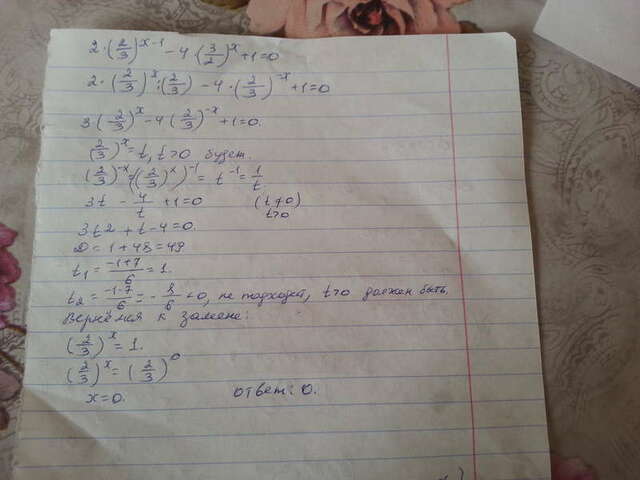 2·(2/3)^(x-1) - 4·(3/2)^x + 1 = 0
2·(2/3)^x : (2/3) - 4·(2/3)^(-x) + 1 = 0
3(2/3)^x - 4(2/3)^(-x) + 1 = 0.
(2/3)^x = t, t>0 будет.
(2/3)^(-x) = ((2/3)^x)^(-1) = t^(-1) = 1/t
3t - 4/t + 1 = 0 (t≠0)
t>0
3t2 + t - 4 = 0.
D = 1 + 48 = 49
t₁ = (-1+7)/6 = 1.
t₂ = (-1-7)/6 = -8/6 < 0, не подходит, t>0 должен быть.
Вернёмся к замене:
(2/3)^x = 1.
(2/3)^x = (2/3)^0
x = 0. ответ: 0.